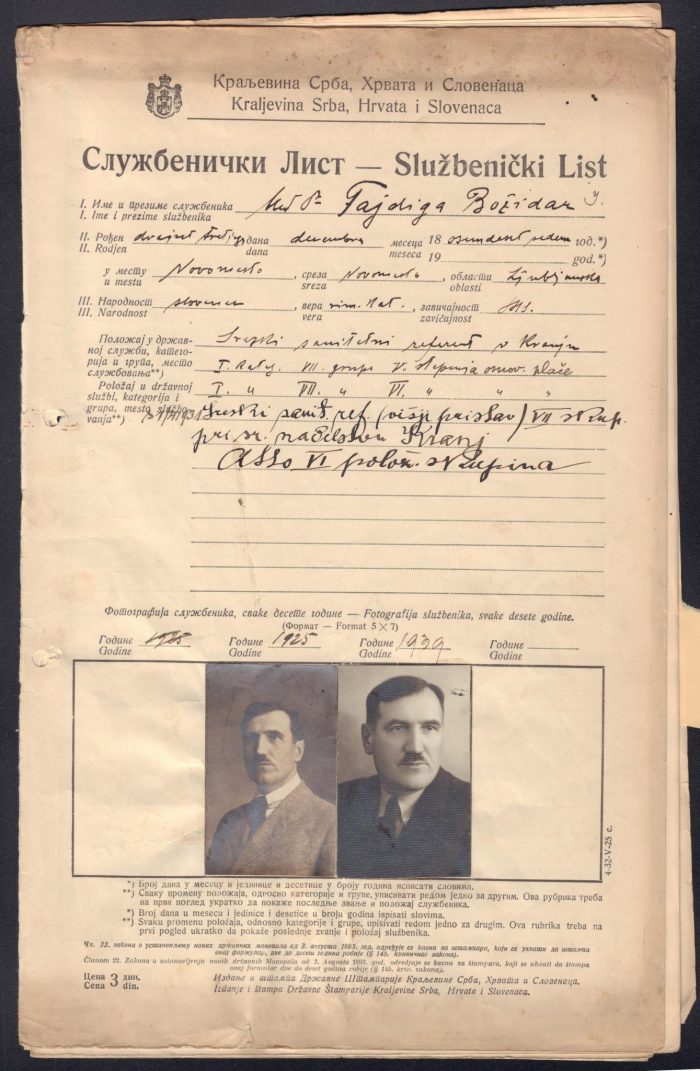 Краљевина Срба, Хрвата и Словенаца
Kraljevina Srba, Hrvata i Slovenaca
Службенички Лист — Službenički List
I. Име и презиме службеника
I. Ime i prezime službenika
Fajdiga Božidar
II. Рођен дана месеца 18 год.*)
II. Rodjen dvajset tretjega dana decembra meseca 19 osemdeset sedem god.*)
у месту среза области
u mestu Novomesto sreza Novomesto oblasti Ljubljanska
III. Народност вера завичајност
III. Narodnost slovenec vera rim. kat. zavičajnost SHS.
Положај у држав-
ној служби, катего-
рија и група, место
службовања**)
Sreski sanitetni referent v Kranju
I. kateg. VII. grupe V. stepenja osnov. plače
Položaj u državnoj
službi, kategorija i
grupa, mesto službo-
vanja**)
I. " VII. " VI. " " "
Sreski sanit. ref. (višji pristav) VII skup.
pri sr. načelstvu Kranj
VI polož. skupina
Фотографија службеника, сваке десете године — Fotografija službenika, svake desete godine.
(Формат — Format 5 × 7)
Године 1925 Године 1925 Године 1939 Године
Godine Godine Godine Godine
4-32-V-25 с.
*) Број дана у месецу и јединице и десетице у броју година исписати словима.
**) Сваку промену положаја, односно категорије и групе, уписивати редом једно за другим. Ова рубрика треба
на први поглед укратко да покаже последње звање и положај службеника.
*) Broj dana u mesecu i jedinice i desetice u broju godina ispisati slovima.
**) Svaku promenu položaja, odnosno kategorije i grupe, upisivati redom jedno za drugim. Ova rubrika treba na
prvi pogled ukratko da pokaže poslednje zvanje i položaj službenika.
Чл. 22. закона о установљењу нових државних монопола од 3. августа 1893. год. одређује се казна за штампара, који се ухвати да штампа
овај формулар, две до десет година робије (§ 145. кривичног закона).
Članom 22. Zakona o ustanovljenju novih državnih Monopola od 3. Avgusta 1893. god. odredjuje se kazna za štampara, koji se uhvati da štampa
ovaj formular dve do deset godina robije (§ 145. kriv. zakona).
Цена 3 дин.
Cena din.
Издање и штампа Државне Штампарије Краљевине Срба, Хрвата и Словенаца.
Izdanje i štampa Državne Štamparije Kraljevine Srba, Hrvata i Slovenaca.